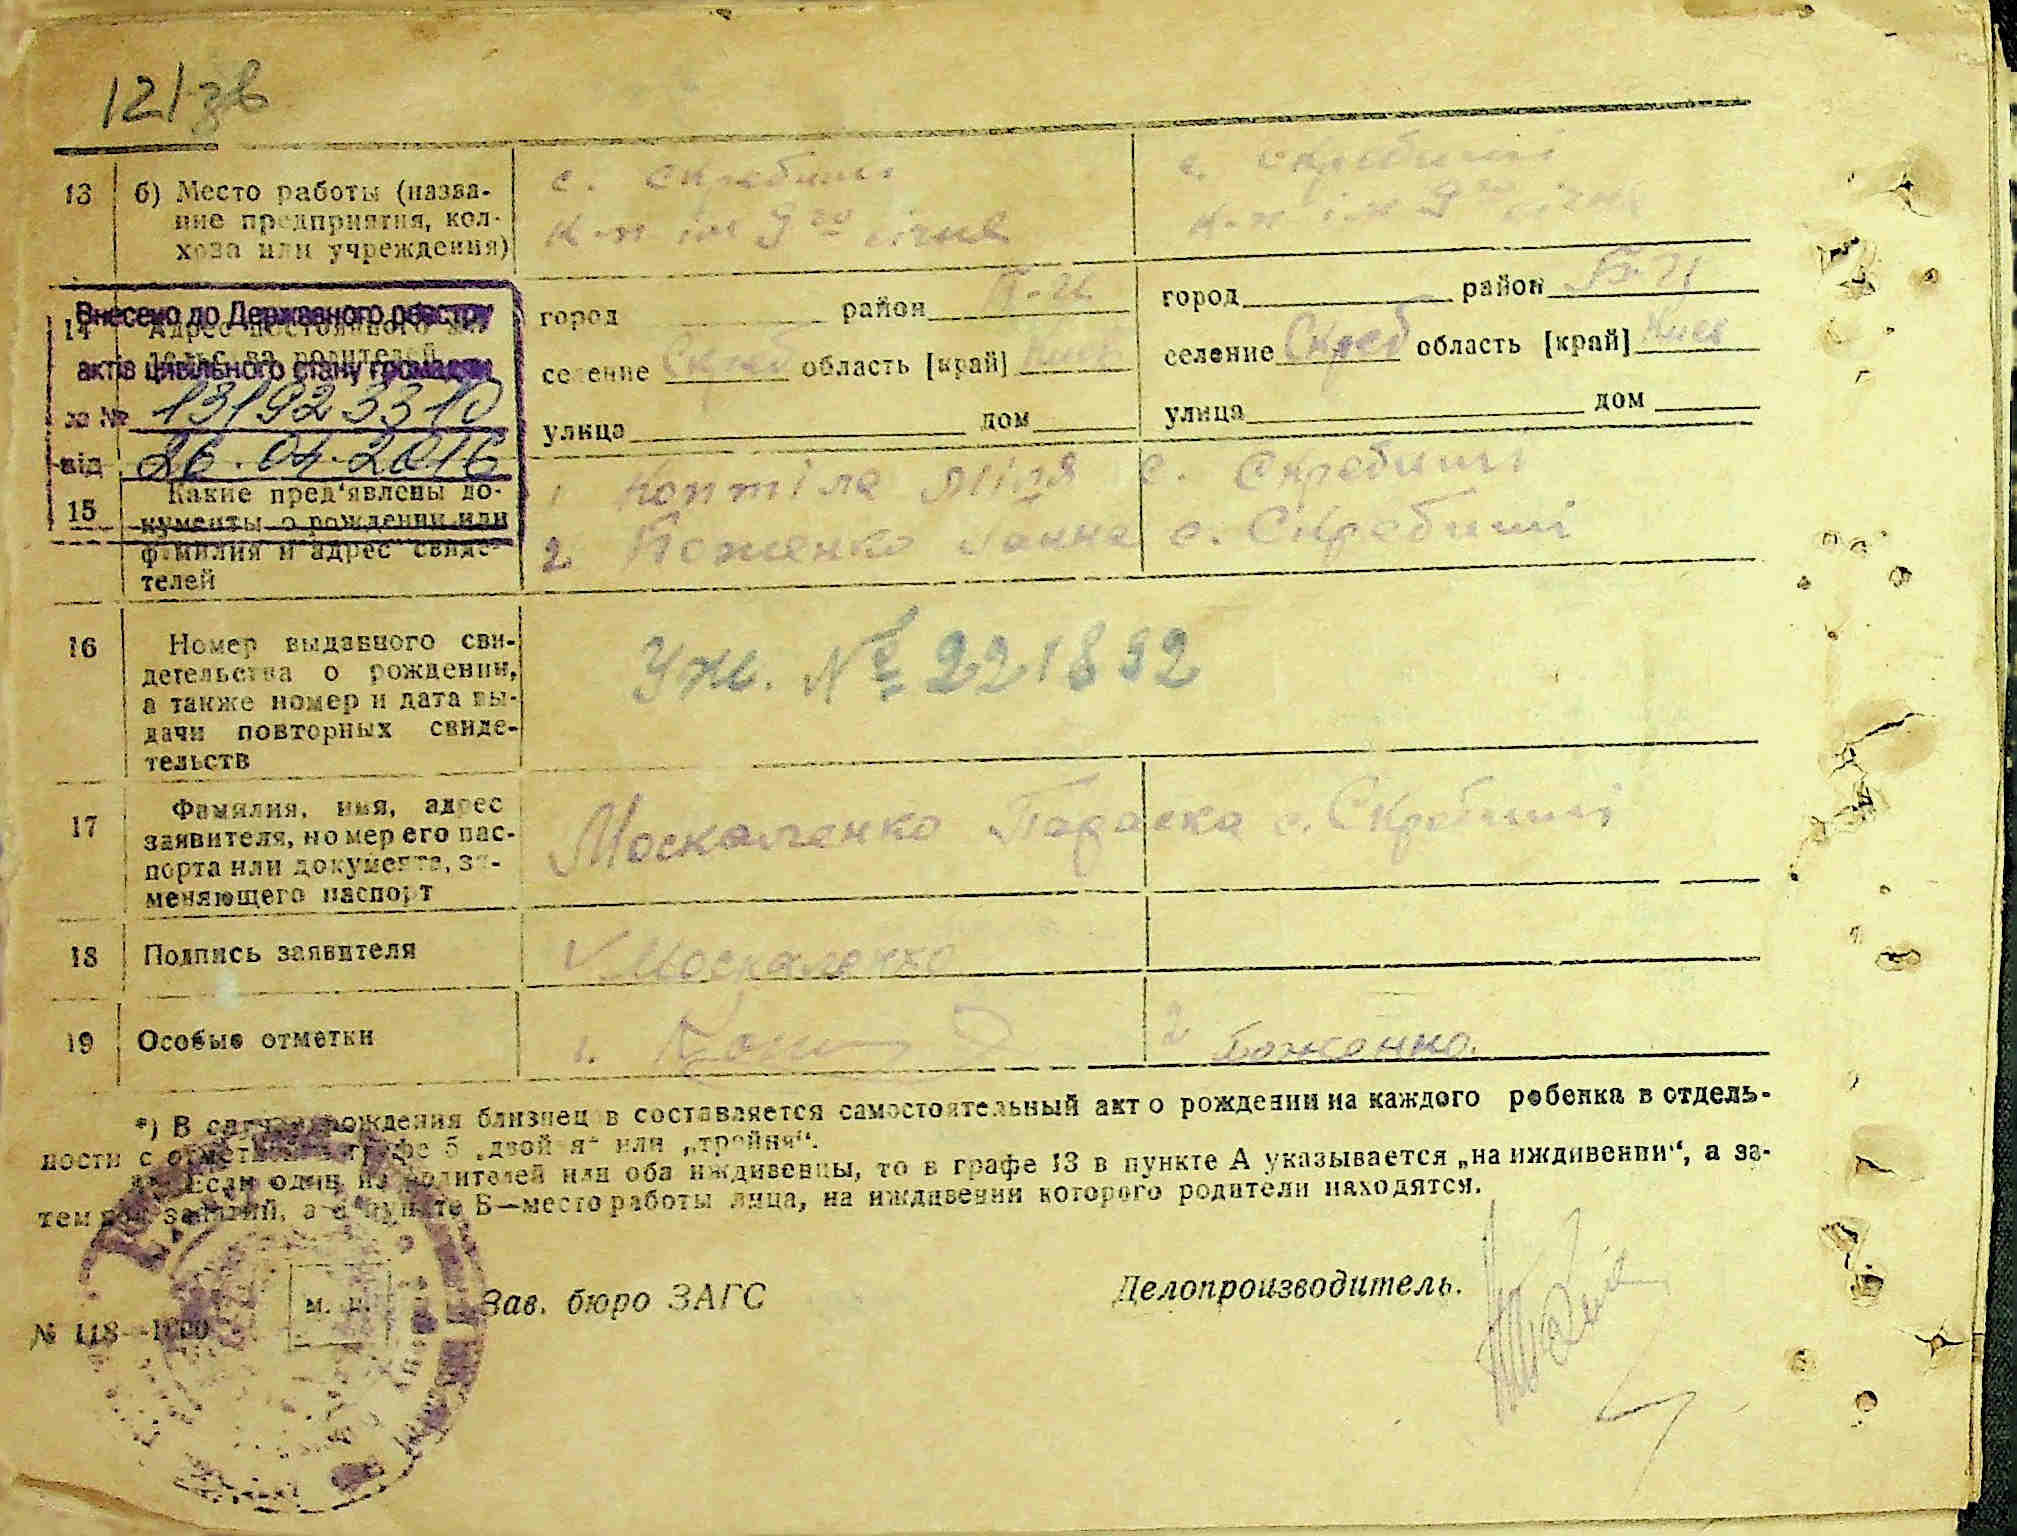 121 зв
13 б) Место работы (назва-
ние предприятия, кол-
хоза или учреждения)
с. Скребиші
к-п ім 9го січня
с. Скребиші
к-п ім 9го січня
14 Адрес постоянного жи-
тельства родителей
Внесено до Державного реєстру
актів цивільного стану громадян
за № 13192331
від 26.04.2016
город район
селение Скреб область [край] Києв
улица дом
город район
селение Скреб область [край] Києв
улица дом
15 Какие пред'явлены до-
кументы о рождении или
фамилия и адрес свиде-
телей
1 Коптіла с. Скребиші
2 Боженко Ганна с. Скребиші
16 Номер выданного сви-
детельства о рождении,
а также номер и дата вы-
дачи повторных свиде-
тельств
№ 221892
17 Фамилия, имя, адрес
заявителя, номер его пас-
порта или документа, за-
меняющего паспорт
Москаленко Параска с. Скребиші
18 Подпись заявителя
Москаленко
19 Особые отметки
1.
2 Боженко.
*) В случае рождения близнецов составляется самостоятельный акт о рождении на каждого ребенка в отдель-
ности с отметкой в графе 5 „двойня“ или „тройня“.
Если один из родителей или оба иждивенцы, то в графе 13 в пункте А указывается „на иждивении“, а за-
тем род занятий, а в пункте Б—место работы лица, на иждивении которого родители находятся.
м. п.
Зав. бюро ЗАГС
Делопроизводитель.
№ 118